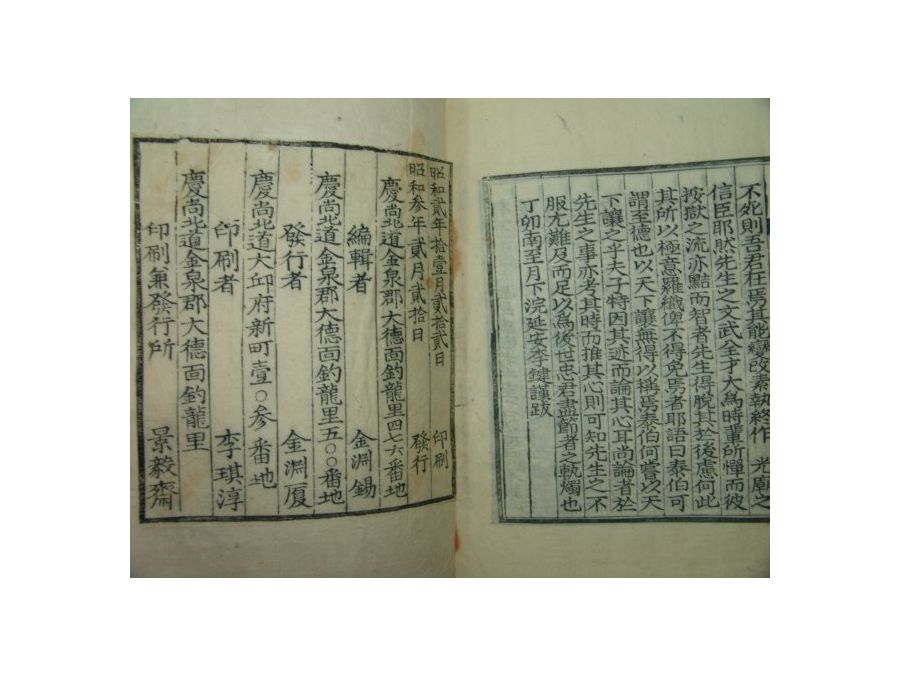 不死則吾君在焉其能變改素執終作 光廟之
信臣耶然先生之文武全才大爲時輩所憚而彼
按獄之流亦黠而智者先生得脫其於後慮何此
其所以極意羅織俾不得免焉者耶語曰泰伯可
謂至德也以天下讓無得以稱焉泰伯何嘗以天
下讓之乎夫子特因其迹而論其心耳尚論者於
先生之事亦考其時而推其心則可知先生之不
服尤難及而足以爲後世忠君盡節者之執燭也
丁卯南至月下浣延安李鍵謹跋
昭和貳年拾壹月貳拾貳日 印刷
昭和參年貳月貳拾日 發行
慶尚北道金泉郡大德面釣龍里四七六番地
編輯者 金淵錫
慶尚北道金泉郡大德面釣龍里五〇〇番地
發行者 金淵厦
慶尚北道大邱府新町壹〇參番地
印刷者 李琪淳
慶尚北道金泉郡大德面釣龍里
印刷兼發行所 景毅齋